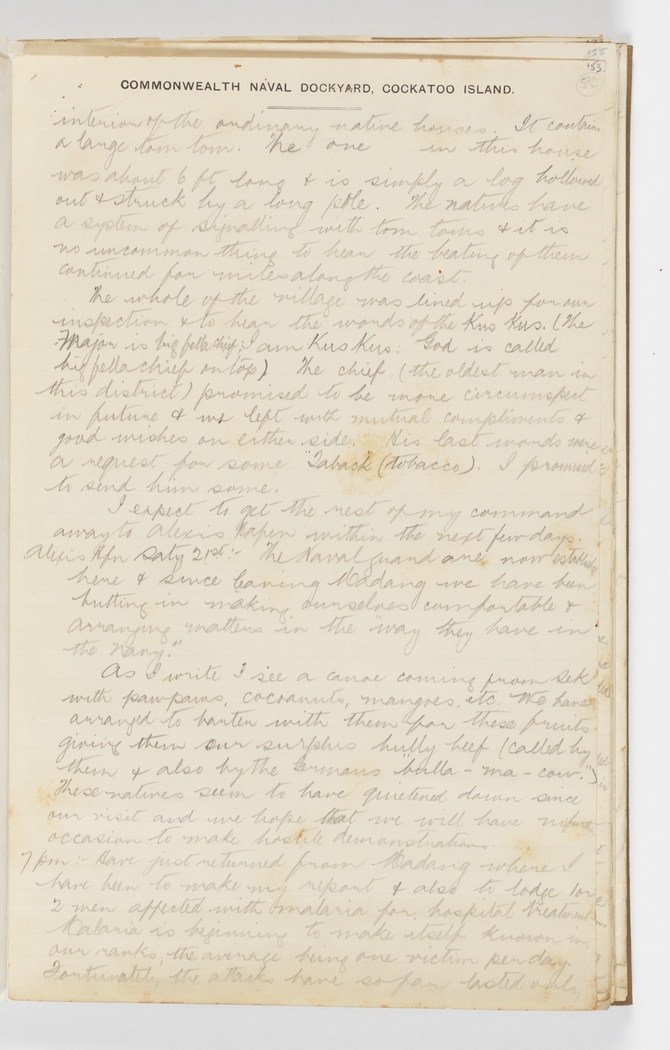 155
153.
COMMONWEALTH NAVAL DOCKYARD, COCKATOO ISLAND.
interior of the ordinary native houses. It contains
a large tom tom. The one in this house
was about 6 ft long & is simply a log hollowed
out & struck by a long pole. The natives have
a system of signalling with tom toms & it is
no uncommon thing to hear the beating of them
continued for miles along the coast.
The whole of the village was lined up for our
inspection & to hear the words of the Kus Kus. (The
Major is big fella chief: I am Kus Kus: God is called
big fella chief on top) The chief (the oldest man in
this district) promised to be more circumspect
in future & we left with mutual compliments &
good wishes on either side. His last words were
a request for some "Taback" (tobacco). I promised
to send him some.
I expect to get the rest of my command
away to Alexis Hafen within the next few days.
Alexis Hfn Saty 21st:- The Naval guard are now establish
here & since leaving Madang we have been
putting in making ourselves comfortable &
arranging matters in the "way they have in
the Navy."
As I write I see a canoe coming from Sek
with pawpaws, cocoanuts, mangoes, etc. We have
arranged to barter with them for these fruits
giving them our surplus bully beef (called by
them & also by the Germans "bulla-ma-cow.")
These natives seem to have quietened down since
our visit and we hope that we will have no
occasion to make hostile demonstrations.
7 pm:- Have just returned from Madang where I
have been to make my report & also to lodge 1 or
2 men affected with malaria for hospital treatment
Malaria is beginning to make itself known in
our ranks, the average being one victim per day.
Fortunately the attacks have so far lasted only